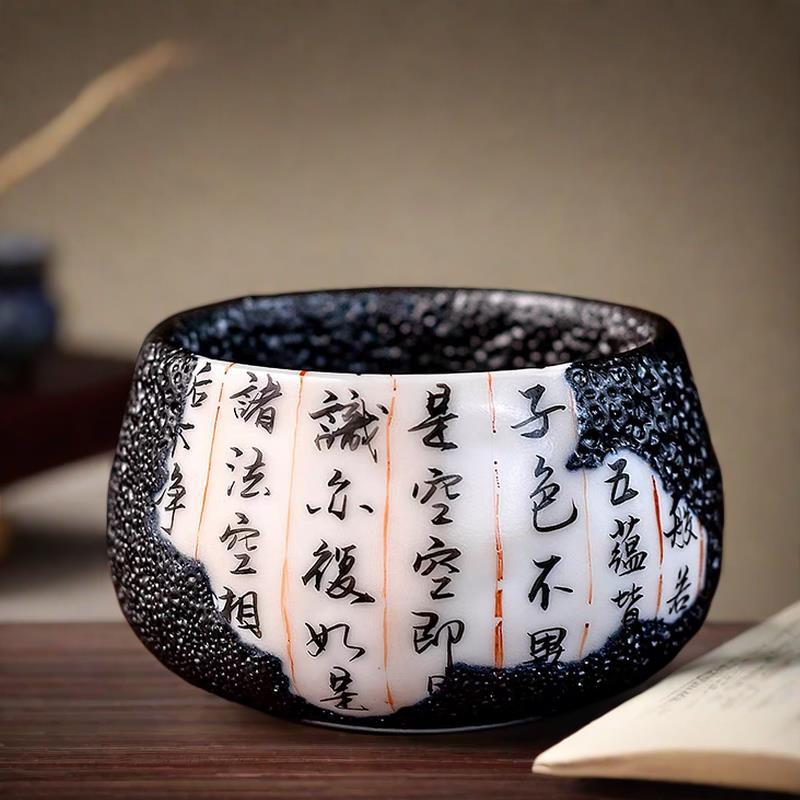 般若
五蘊皆
子色不異
是空空即
識亦復如是
諸法空相
垢不净